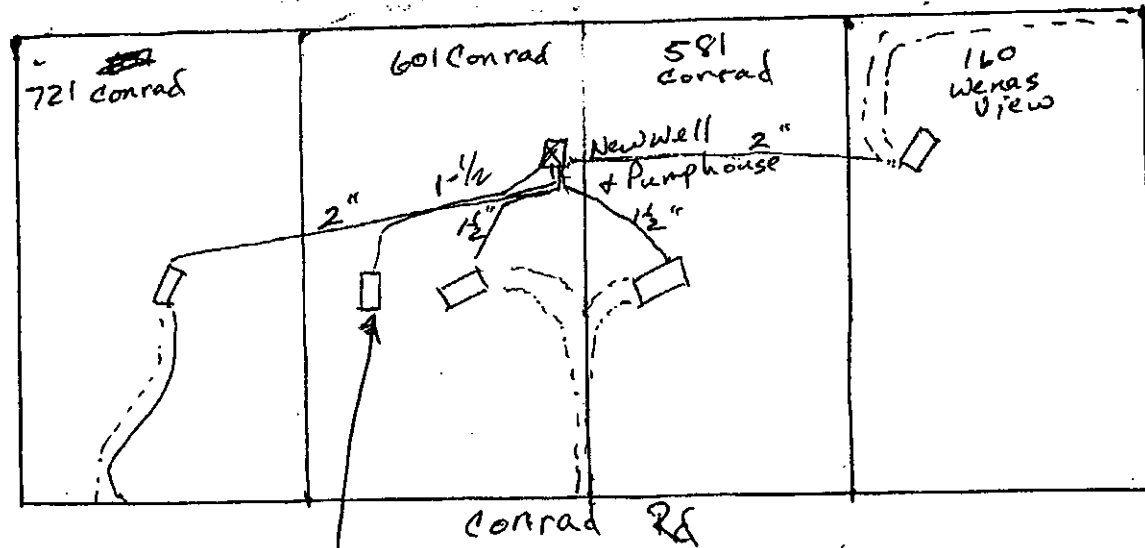 721 Conrad
601 Conrad
581
Conrad
160
Wenas
View
New well
& Pumphouse
2"
1-1/2
2"
1½"
1½"
Conrad Rd